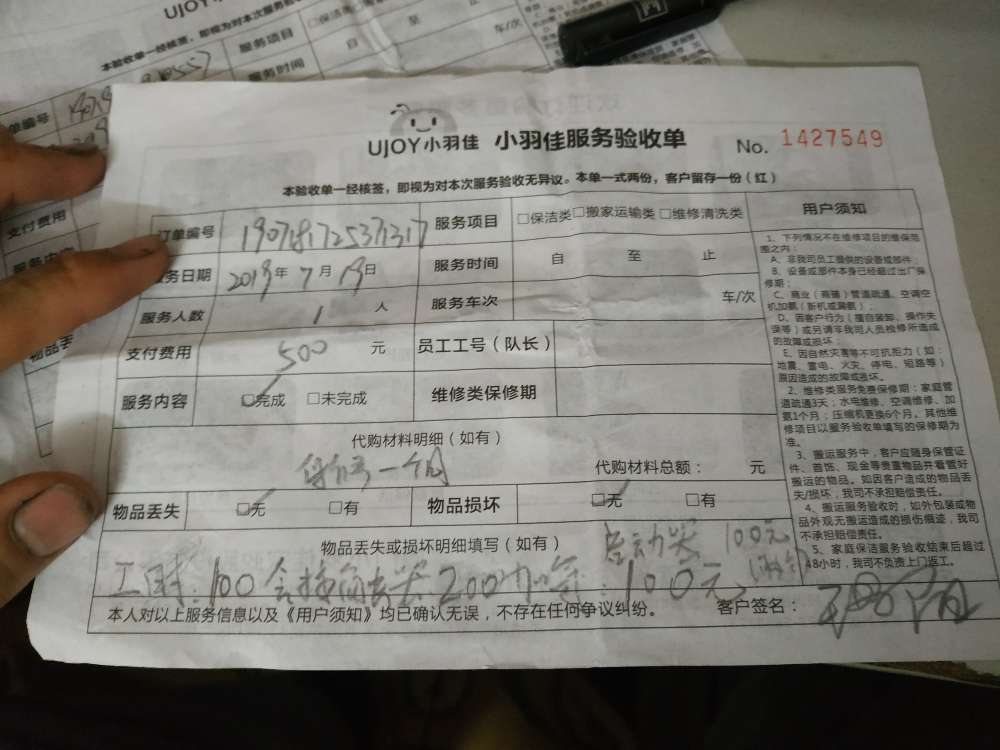 UJOY小羽佳 小羽佳服务验收单 No. 1427549
本验收单一经核签，即视为对本次服务验收无异议。本单一式两份，客户留存一份（红）
订单编号 服务项目 □保洁类□搬家运输类□维修清洗类
服务日期 2019年7月19日 服务时间 自 至 止
服务人数 1 人 服务车次 车/次
支付费用 500 元 员工工号（队长）
服务内容 □完成 □未完成 维修类保修期
代购材料明细（如有）
代购材料总额： 元
物品丢失 □无 □有 物品损坏 □无 □有
物品丢失或损坏明细填写（如有）
启动器 100元
工时：100 200 加氟：100元
本人对以上服务信息以及《用户须知》均已确认无误，不存在任何争议纠纷。 客户签名：
用户须知
1、下列情况不在维修项目的维保范
围之内：
A、非我司员工提供的设备或部件；
B、设备或部件本身已经超过出厂保
修期；
C、商业（商铺）管道疏通、空调空
机加氨（新机或漏氨）
D、因客户行为（擅自装卸、操作失
误等）或另请非我司人员检修所造成
的故障或损坏；
E、因自然灾害等不可抗拒力（如：
地震、雷电、火灾、停电、短路等）
原因造成的故障或损坏。
2、维修类服务免费保修期：家庭管
道疏通3天；水电维修、空调维修、加
氨1个月；压缩机更换6个月。其他维
修项目以服务验收单填写的保修期为
准。
3、搬运服务中，客户应随身保管证
件、首饰、现金等贵重物品并看管好
搬运的物品。如因客户造成的物品丢
失/损坏，我司不承担赔偿责任。
4、搬运服务验收时，如外包装或物
品外观无搬运造成的损伤痕迹，我司
不承担赔偿责任。
5、家庭保洁服务验收结束后超过
48小时，我司不负责上门返工。
UJOY小羽佳
本验收单一经核签，即视为对本次服务
服务项目
服务时间 自 至 止
车/次
单编号
支付费用
服务内容